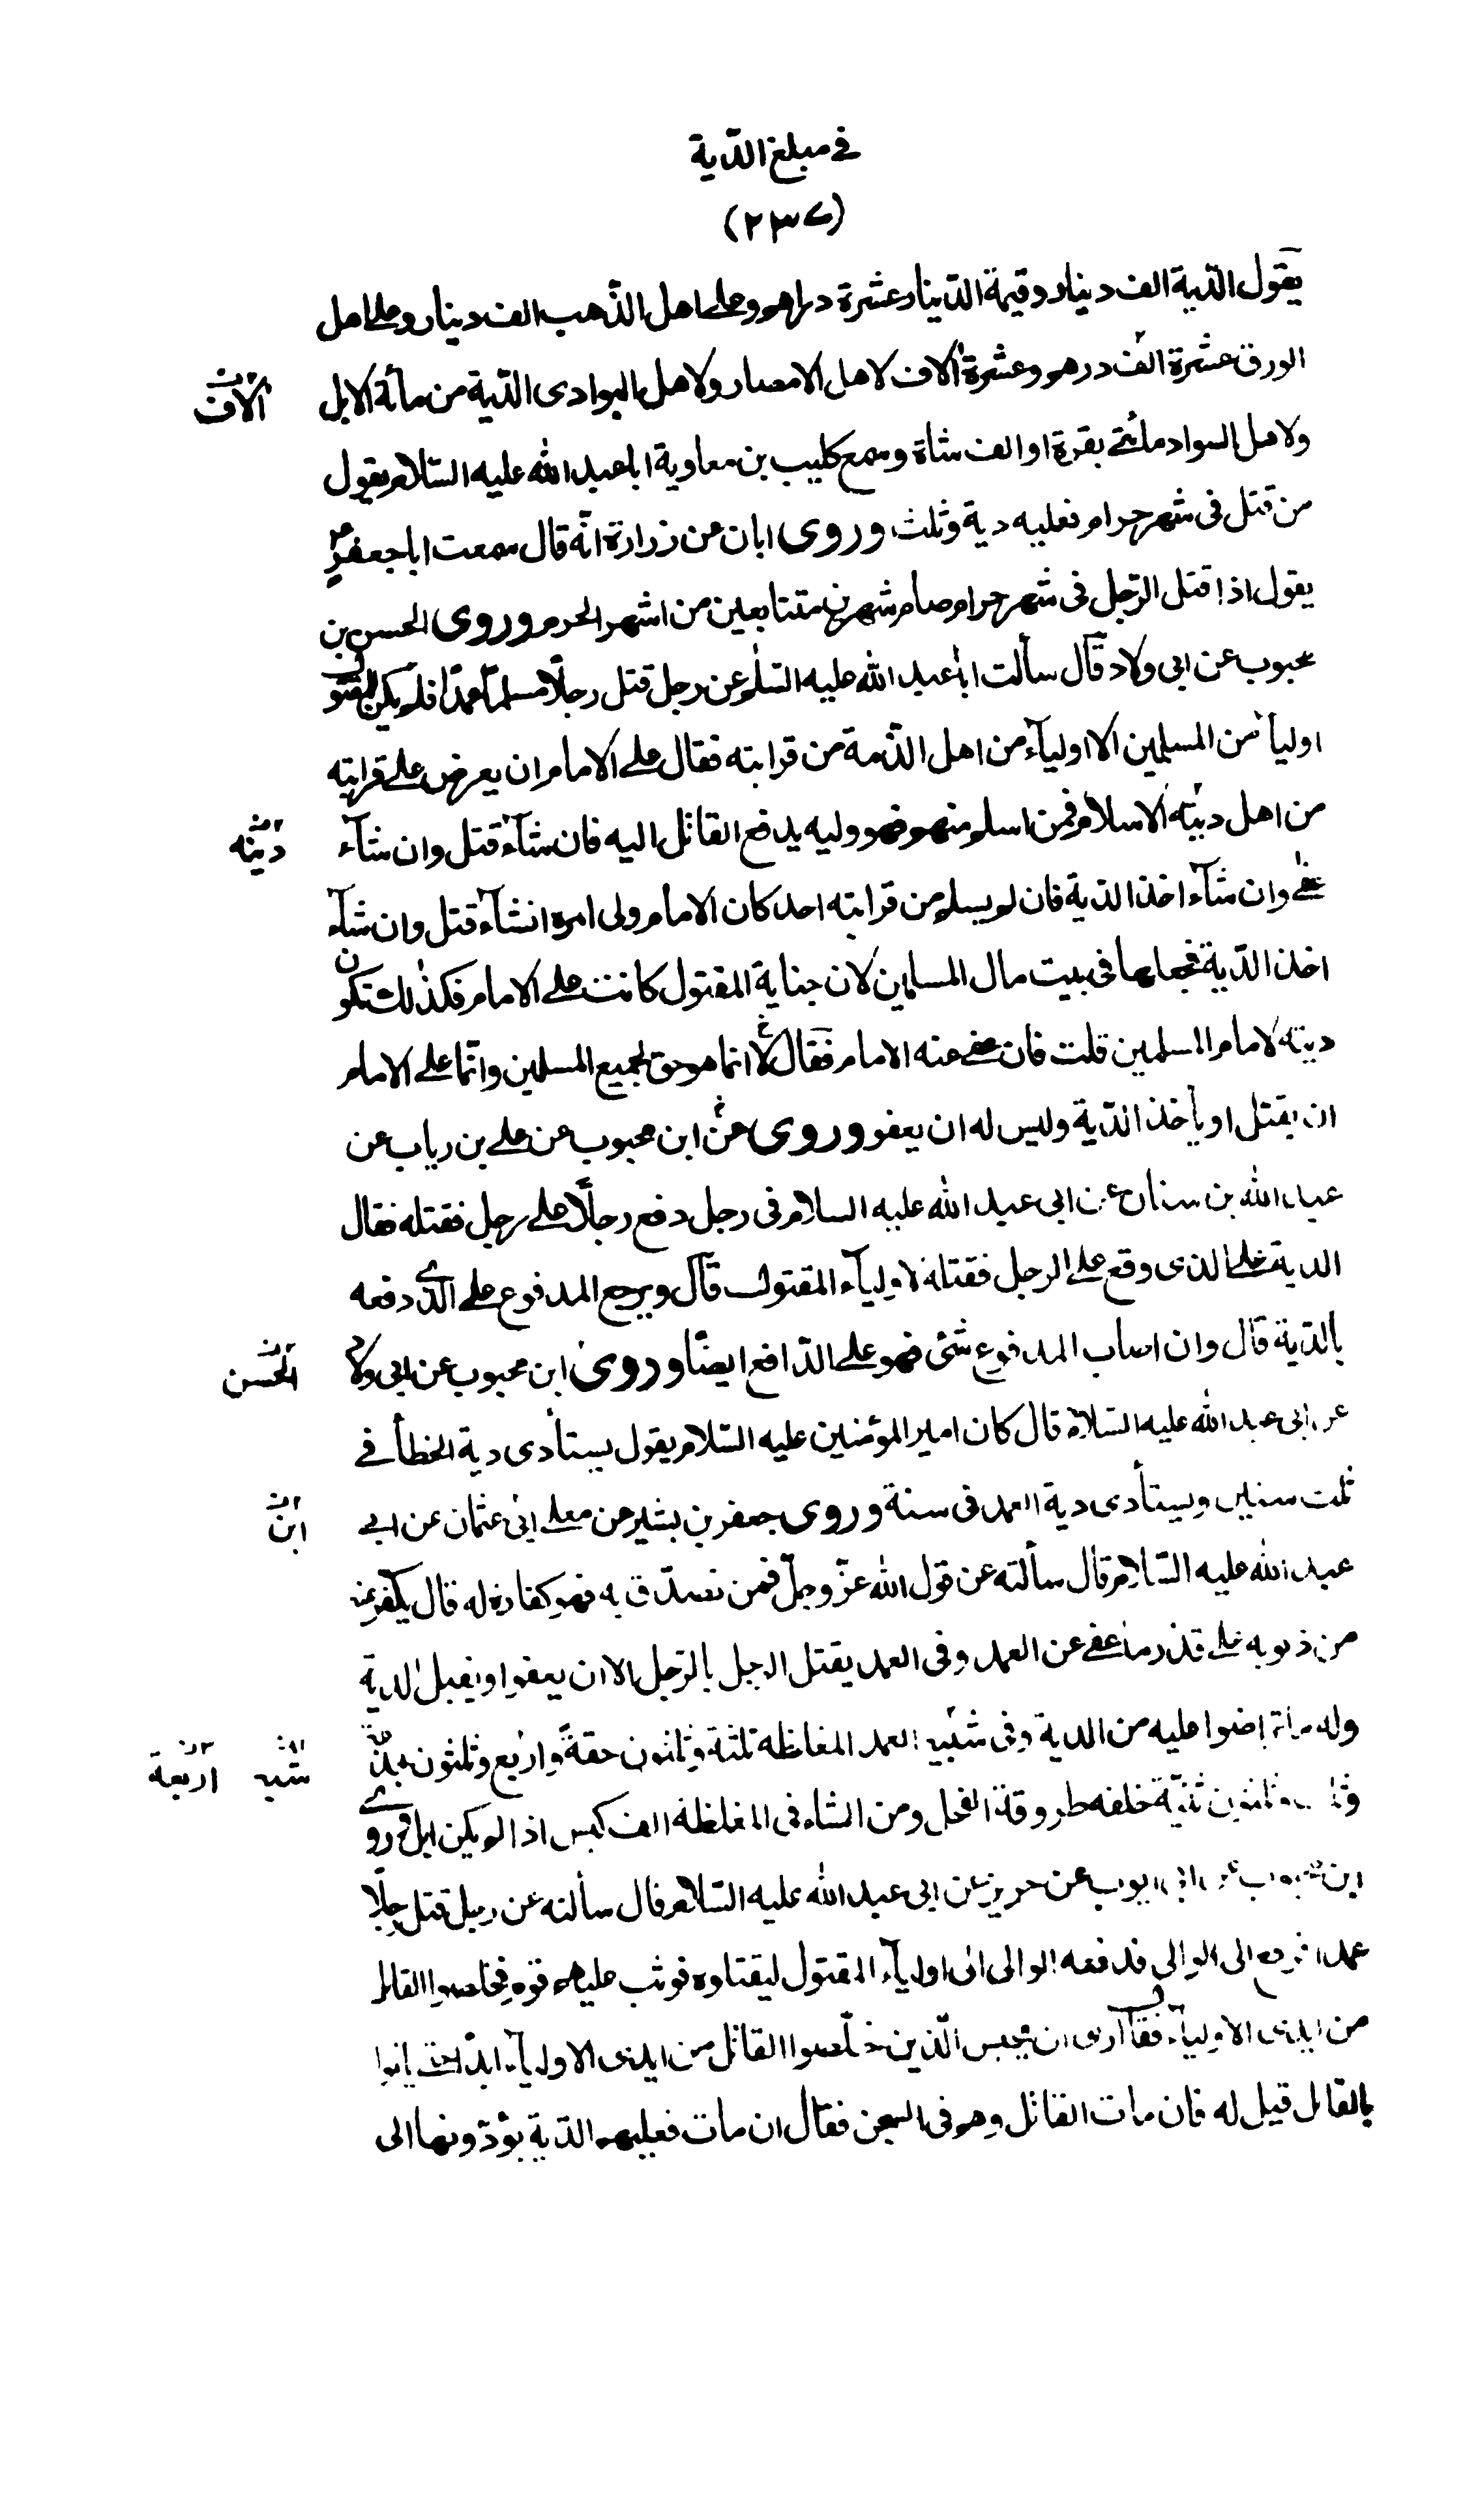 في مبلغ الدّية
(٢٣٧)
يقول الدّية الف دينار وقيمة الدّينار عشرة دراهم وعلى اهل الذّهب الف دينار وعلى اهل
الورق عشرة الف درهم وعشرة آلاف لاهل الامصار ولاهل البوادى الدّية من مأة الابل
الآلاف
ولاهل السواد مائتى بقرة او الف شاة وسمع كليب بن معاوية ابا عبد الله عليه السّلام يقول
من قتل فى شهر حرام فعليه دية وثلث وروى ابان عن زرارة انّه قال سمعت ابا جعفر ع
يقول اذا قتل الرّجل فى شهر حرام صام شهرين متتابعين من اشهر الحرم وروى الحسن بن
محبوب عن ابى ولاد قال سألت ابا عبد الله عليه السّلم عن رجل قتل رجلًا مسلمًا عمدًا فلم يكن للمقتول
اوليآء من المسلمين الا اوليآء من اهل الذّمة من قرابته فقال على الامام ان يعرض على قرابته
من اهل ديته الاسلام فمن اسلم منهم فهو وليه يدفع القاتل اليه فان شآء قتل وان شآء
دينه
عفى وان شآء اخذ الدّية فان لم يسلم من قرابته احد كان الامام ولى امره انشآء قتل وان شآء
اخذ الدّية فجعلها فى بيت مال المسلمين لان جناية المقتول كانت على الامام فكذلك تكون
ديته لامام المسلمين قلت فان عفى عنه الامام فقال لا انما هو حق لجميع المسلمين وانّما على الامام
ان يقتل او يأخذ الدّية وليس له ان يعفو وروى عن ابن محبوب عن على بن رياب عن
عبد الله بن سنان عن ابى عبد الله عليه السلام فى رجل دفع رجلًا على رجل فقتله فقال
الدية على الذى وقع على الرجل فقتله لاوليآء المقتول قال ويرجع المدفوع على الذى دفعه
بالدّية قال وان اصاب المدفوع شئ فهو على الدّافع ايضًا وروى ابن محبوب عن ابى ولاد
الحسن
عن ابى عبد الله عليه السّلام قال كان امير المؤمنين عليه السّلام يقول يستأدى دية الخطأ فى
ثلث سنين ويستأدى دية العمد فى سنة وروى جعفر بن بشير عن معلى ابى عثمان عن ابى
ابن
عبد الله عليه السّلام قال سألته عن قول الله عزّ وجلّ فمن تصدّق به فهو كفارة له قال يكفر عنه
من ذنوبه على قدر ما عفى عن العمد وفى العمد يقتل الرجل بالرّجل الا ان يعفوا او يقبل الدية
وله ما تراضوا عليه من الدية وفى شبيه العمد المغلظة ثلثة وثلثون حقةً واربع وثلثون جذعة
شبه اربعة
وثلث وثلثون ثنيّة خلفه طروقة الفحل ومن الشاء فى المغلظة الف كبس اذا لم يكن ابل وروى
ابن محبوب عن ابى ايوب عن حريز عن ابى عبد الله عليه السّلام قال سألته عن رجل قتل رجلًا
عمدا فرفع الى الوالى فدفعه الوالى الى اوليآء المقتول ليقتلوه فوثب عليهم قوم فخلصوا القاتل
من ايدى الاوليآء فقال ارى ان يحبس الّذين خلّصوا القاتل من ايدى الاوليآء ابدًا حتى يأتوا
بالقاتل قيل له فان مات القاتل وهم فى السجن فقال ان مات فعليهم الدّية يؤدّونها الى